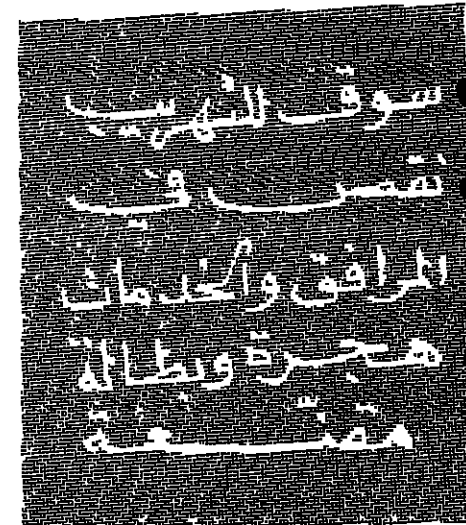 سوق للتهريب
نقص في
المرافق والخدمات
هجرة وبطالة
مقنعة